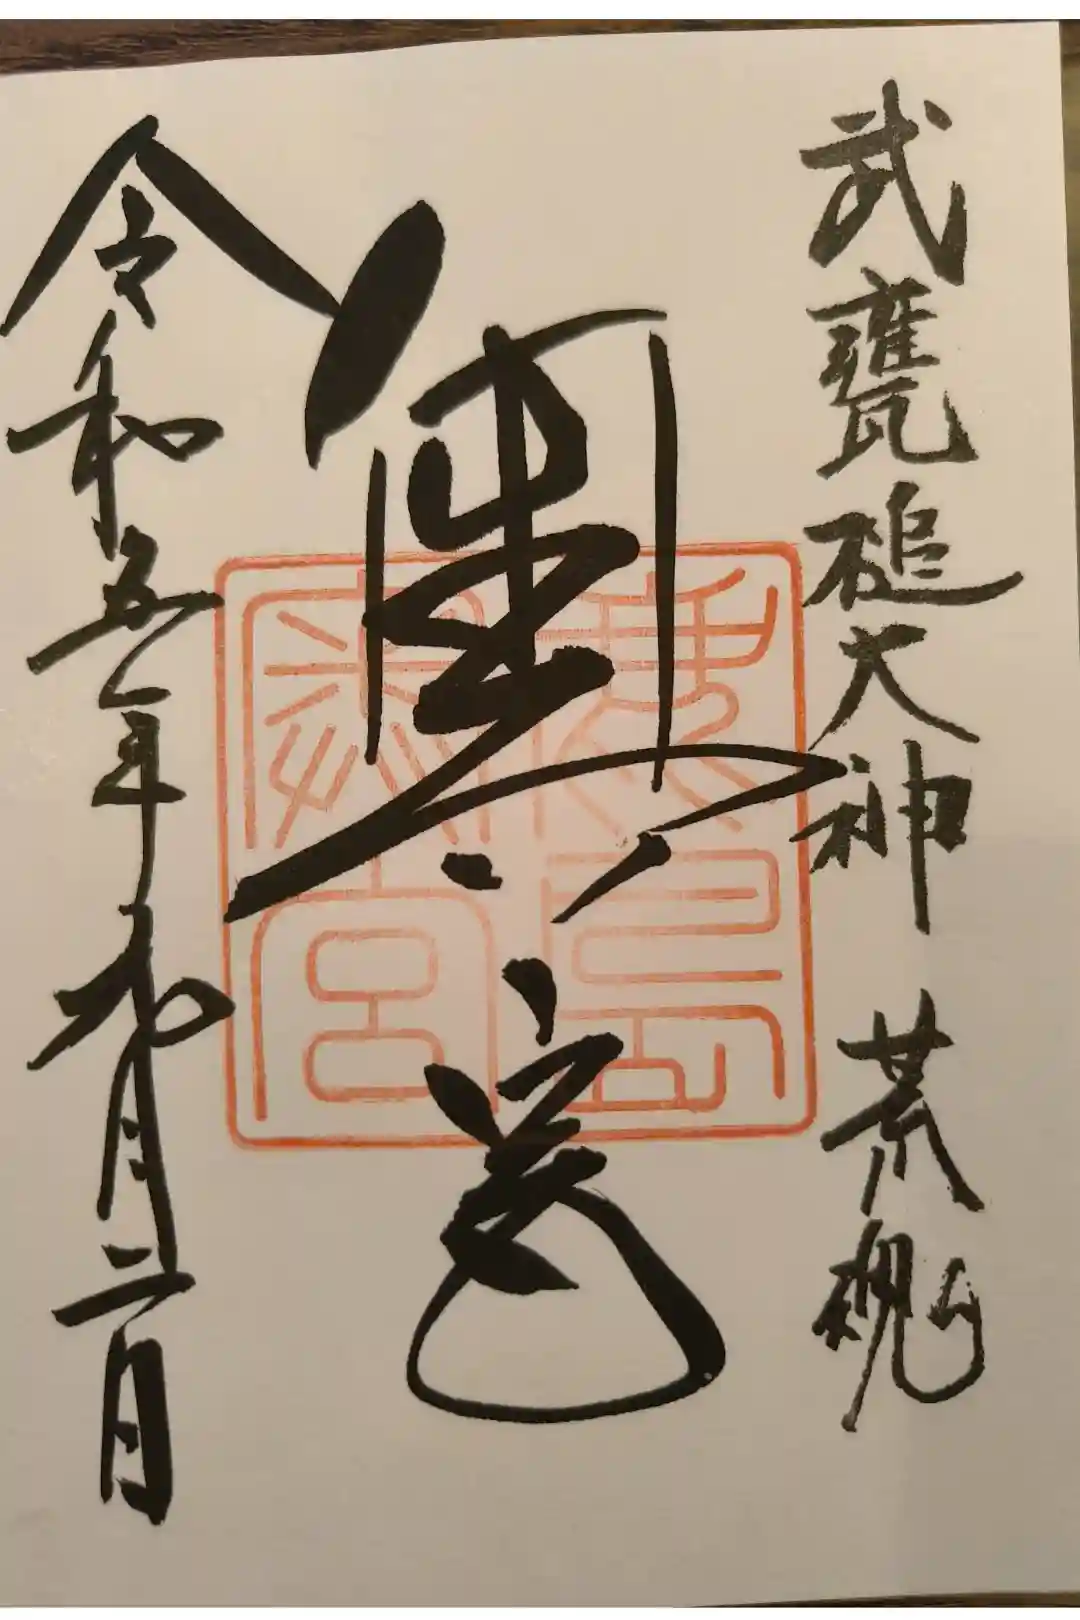 武甕槌大神 荒魂
奥宮
鹿島
奥宮
令和五年九月二日